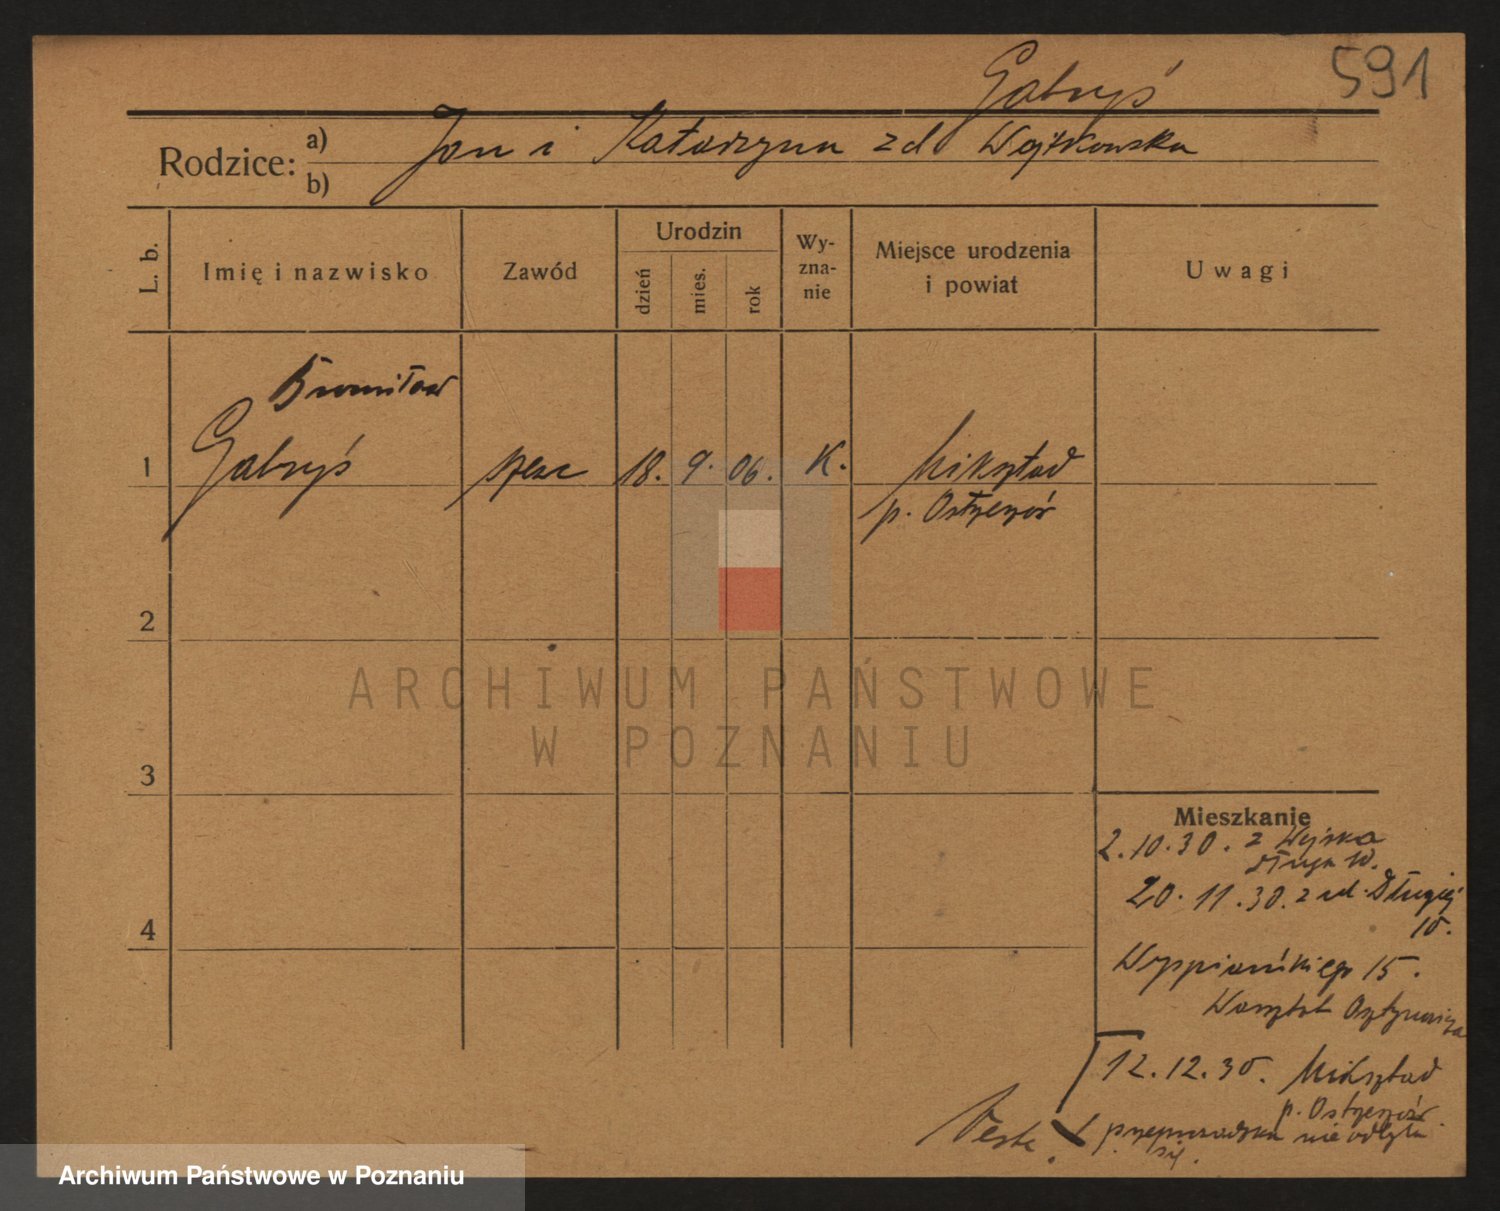 591
Gabryś
Rodzice: a) Jan i Katarzyna z d. Wojtkowska
b)
L. b. Imię i nazwisko Zawód Urodzin dzień mies. rok Wy-zna-nie Miejsce urodzenia i powiat Uwagi
Bronisław
1 Gabryś 18. 9. 06. K. Mikstad
p. Ostrzeszów
2
ARCHIWUM PAŃSTWOWE
W POZNANIU
3
Mieszkanie
2.10.30. z Wojska
20.11.30. z ul. Długiej
4
10.
Wyspiańskiego 15.
Warsztat
12.12.30. Mikstad
p. Ostrzeszów
przeprowadzka nie odbyła
się.
Archiwum Państwowe w Poznaniu